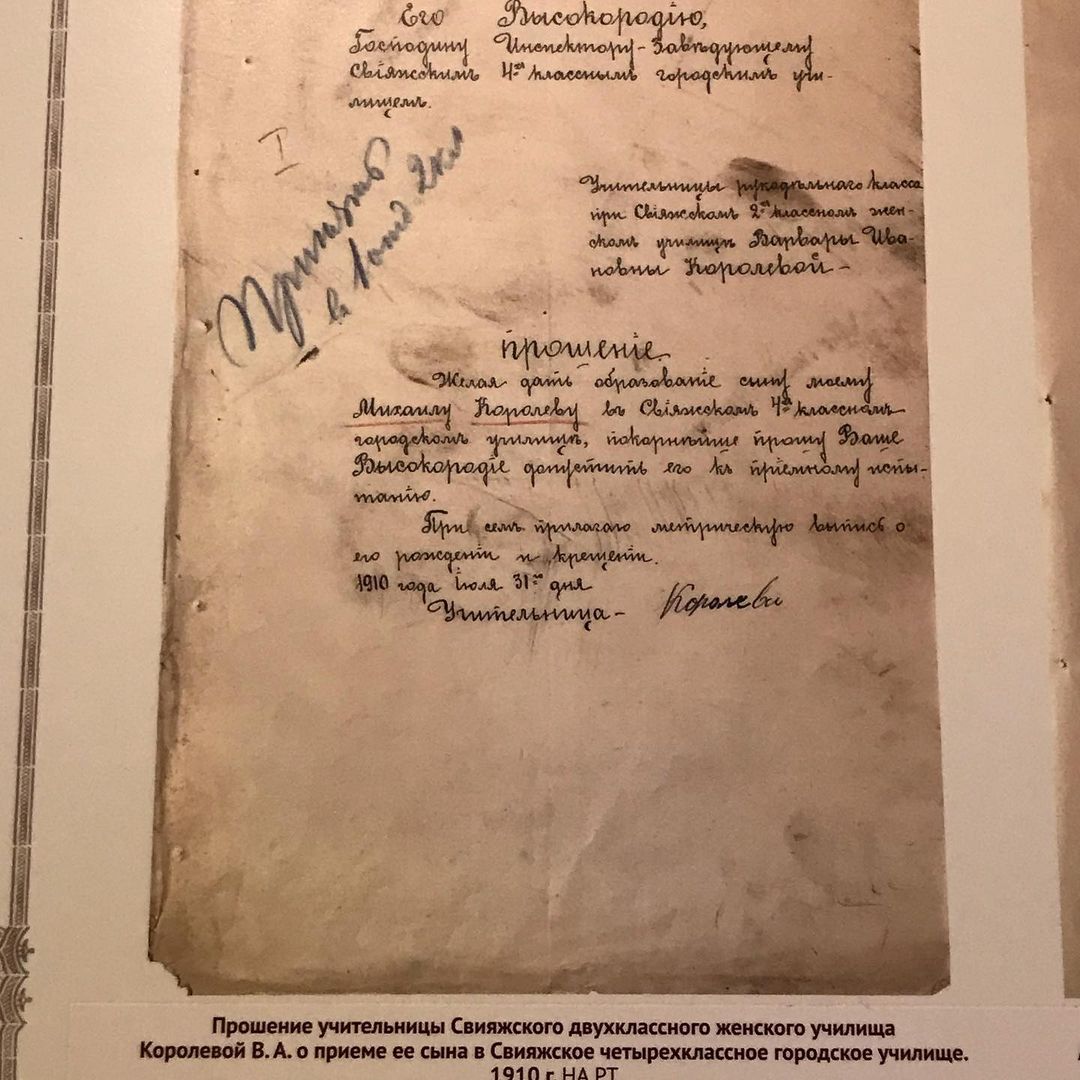 Его Высокородію,
Господину Инспектору-Завѣдующему
Свіяжскимъ 4хъ класснымъ городскимъ учи-
лищемъ.
I
Принять
в 1 отд 2 кл
Учительницы рукодѣльнаго класса
при Свіяжскомъ 2хъ классномъ жен-
скомъ училищѣ Варвары Ива-
новны Королевой -
Прошеніе.
Желая дать образованіе сыну моему
Михаилу Королеву въ Свіяжскомъ 4хъ классномъ
городскомъ училищѣ, покорнѣйше прошу Ваше
Высокородіе допустить его къ пріемному испы-
танію.
При семъ прилагаю метрическую выпись о
его рожденіи и крещеніи.
1910 года Іюля 31го дня
Учительница - Королева
Прошение учительницы Свияжского двухклассного женского училища
Королевой В. А. о приеме ее сына в Свияжское четырехклассное городское училище.
1910 г. НА РТ